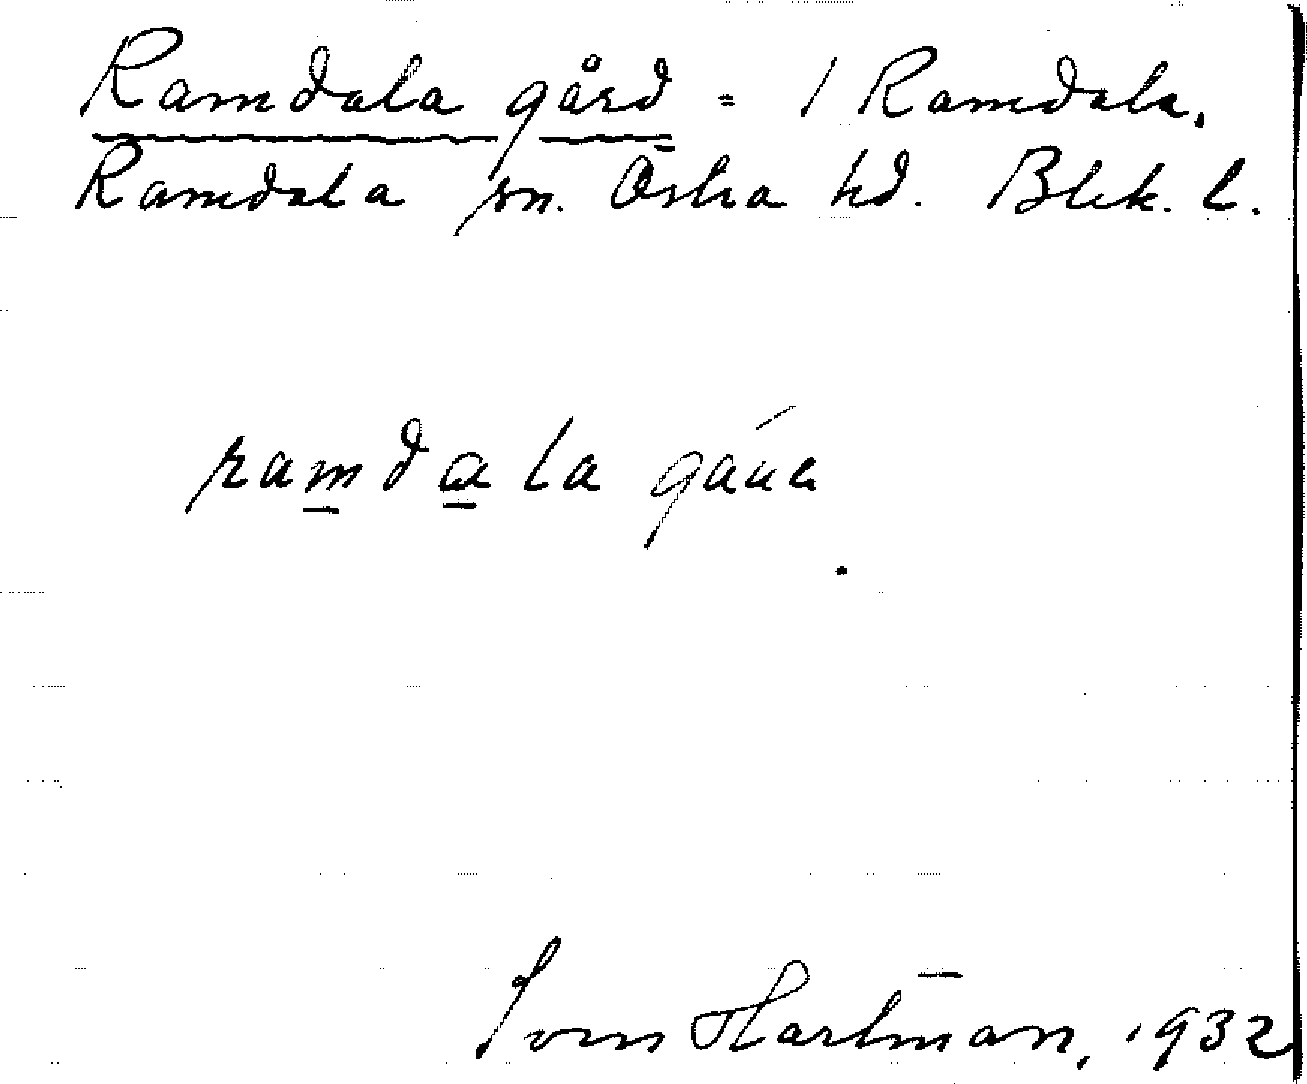 Ramdala gård = 1 Ramdala,
Ramdala sn. Östra hd. Blek. l.
ramdala
Hartman, 1932